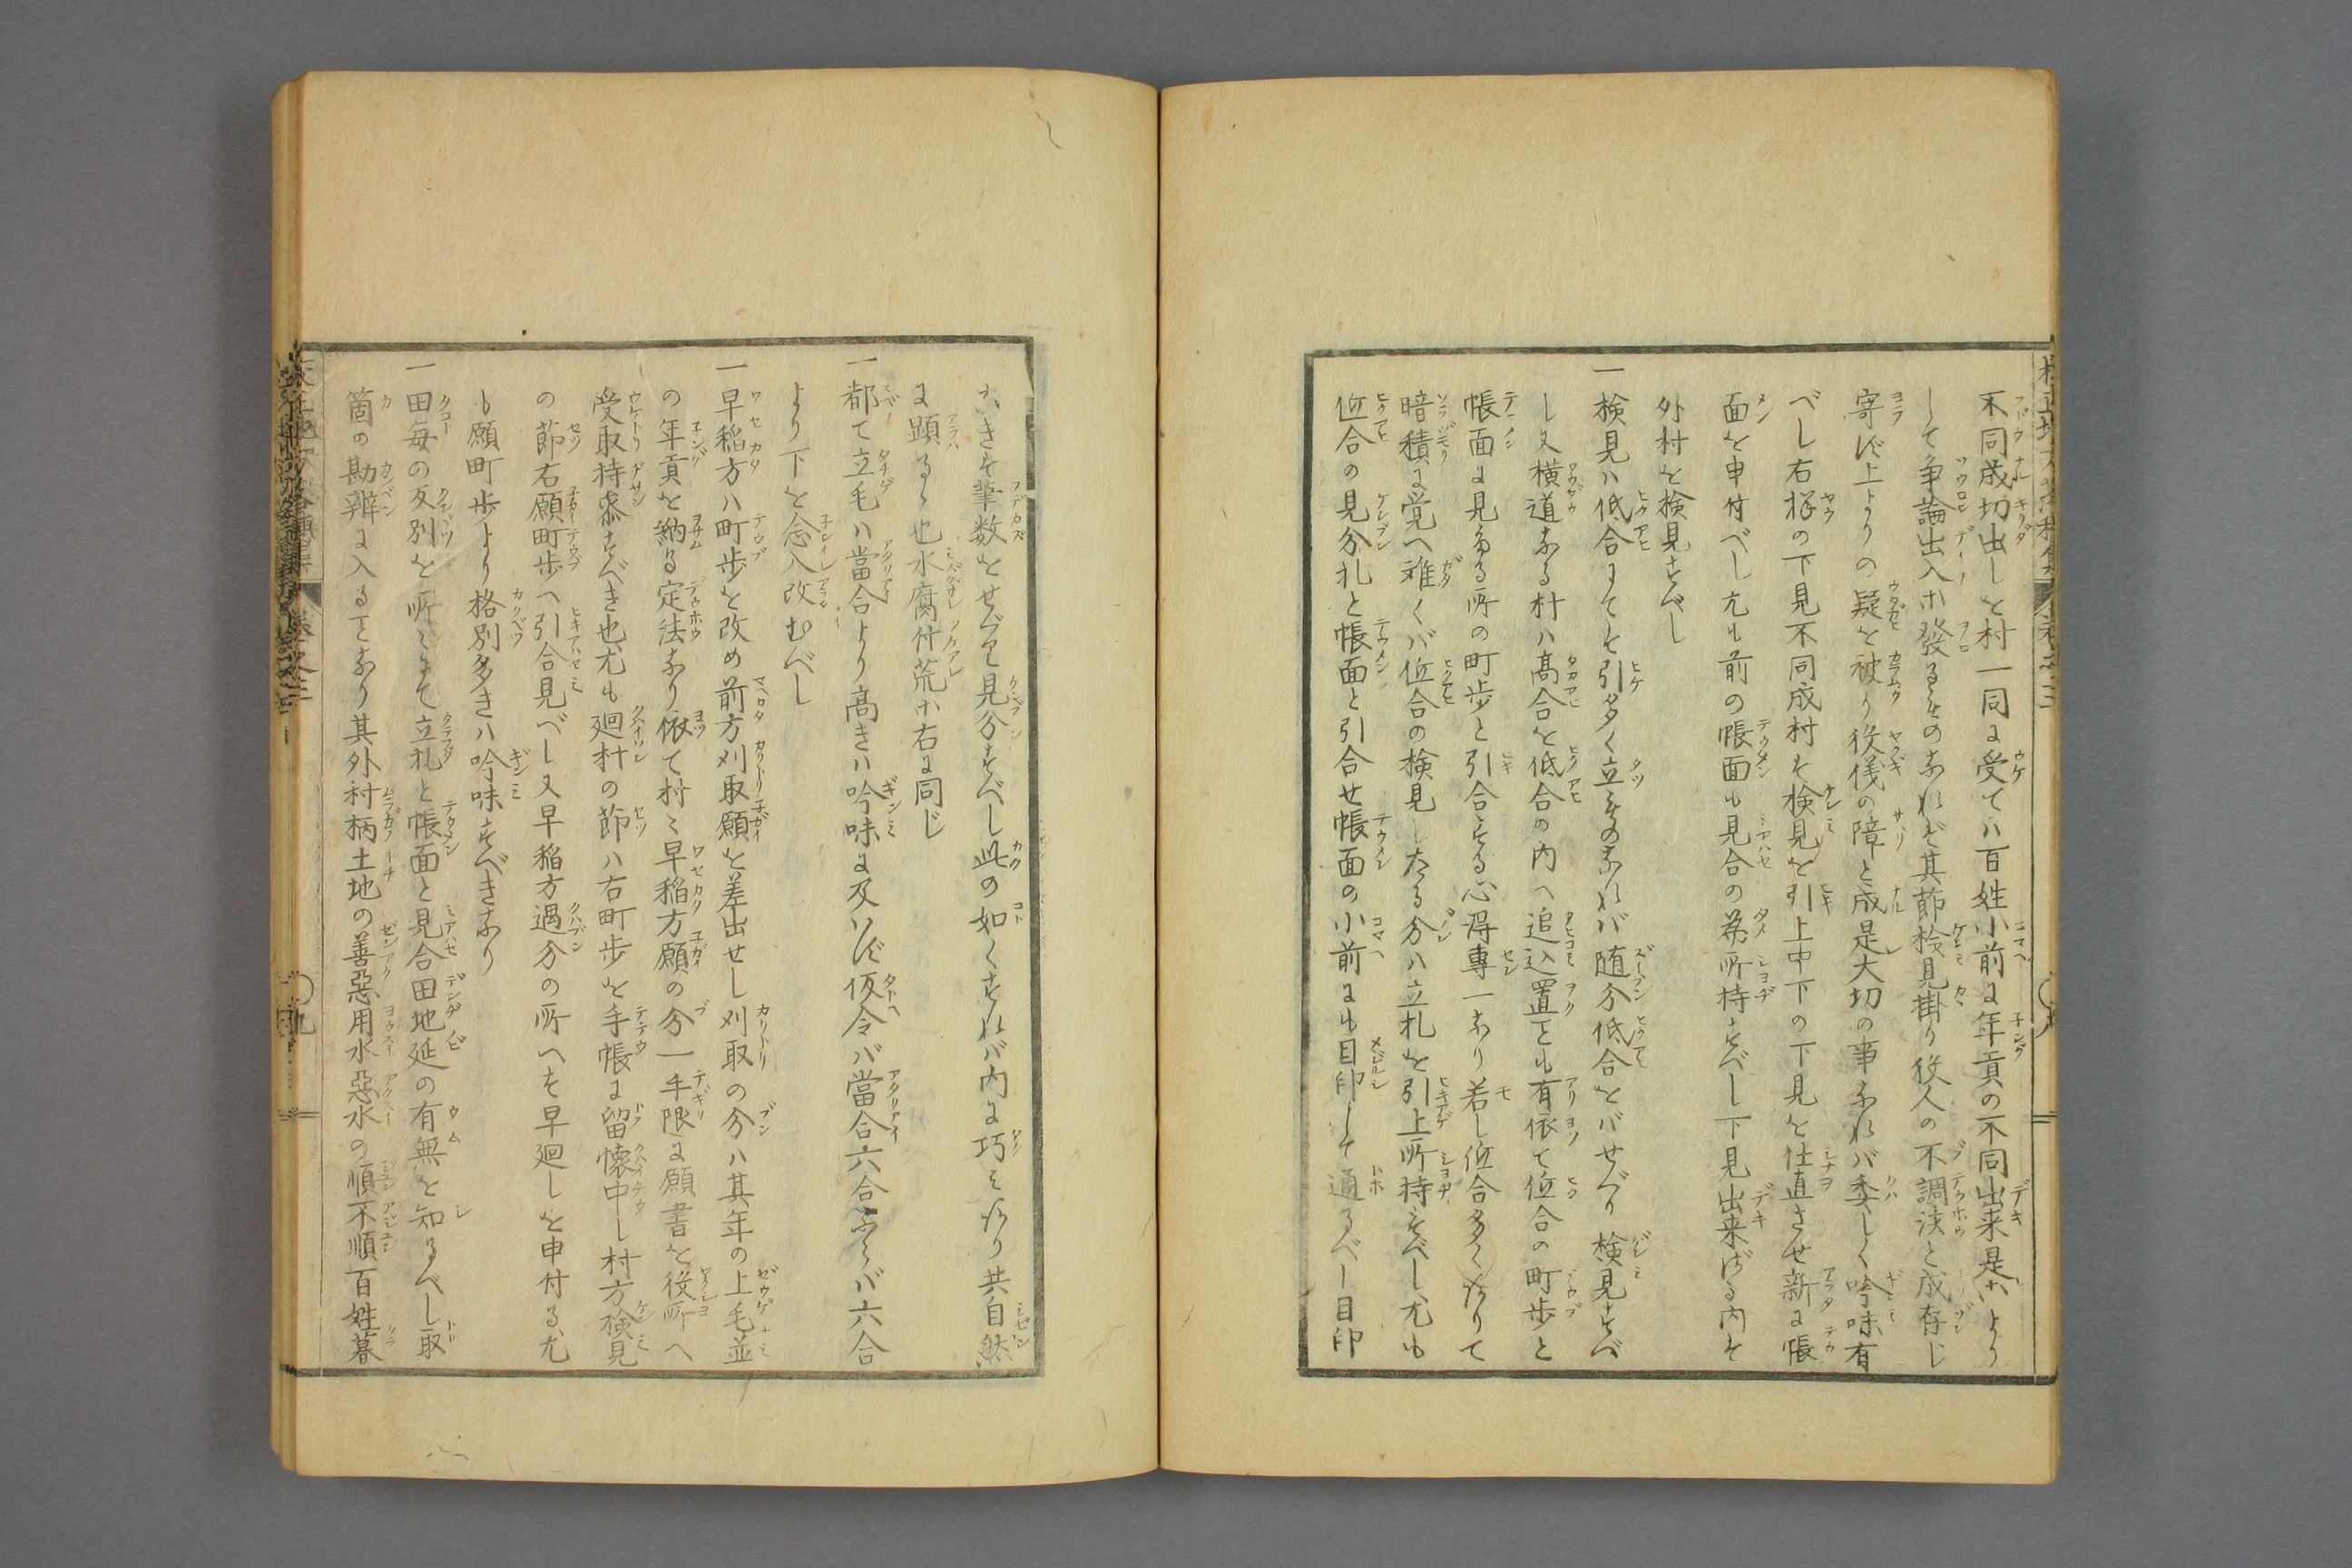 不同成切出しを村一同に受ては百姓小前に年貢の不同出来是より
して争論出入ホ發るものなれど其節検見掛り役人の不調法と成存じ
寄ず上よりの疑を被り役儀の障と成是大切の事なれバ委しく吟味有
べし右様の下見不同成村は検見を引上中下の下見を仕直させ新に帳
面を申付べし尤も前の帳面も見合の為所持すべし下見出来ざる内は
外村を検見すべし
一検見ハ低合にては引多く立ものなれバ随分低合をバせべり検見すべ
し又横道なる村ハ高合を低合の内へ追込置ことも有依て位合の町歩と
帳面に見ゆる所の町歩と引合する心得専一なり若し位合多くありて
暗積に覚へ難くバ位合の検見したる分ハ立札を引上所持すべし尤も
位合の見分札と帳面と引合せ帳面の小前にも目印して通るべし目印
なきは筆数をせべり見分すべし此の如くすれバ内に巧ミあり共自然
に顕るゝ也水腐付荒ホ右に同じ
一都て立毛ハ當合より高きハ吟味に及ハず仮令バ當合六合ならバ六合
より下を念入改むべし
一早稲方ハ町歩を改め前方刈取願を差出せし刈取の分ハ其年の上毛並
の年貢を納る定法なり依て村々早稲方願の分一手限に願書を役所へ
受取持参すべき也尤も廻村の節ハ右町歩を手帳に留懐中し村方検見
の節右願町歩へ引合見べし又早稲方過分の所へは早廻しを申付る尤
も願町歩より格別多きハ吟味すべきなり
一田毎の反別を所々にて立札と帳面と見合田地延の有無を知るべし取
箇の勘辨に入ることなり其外村柄土地の善惡用水惡水の順不順百姓暮